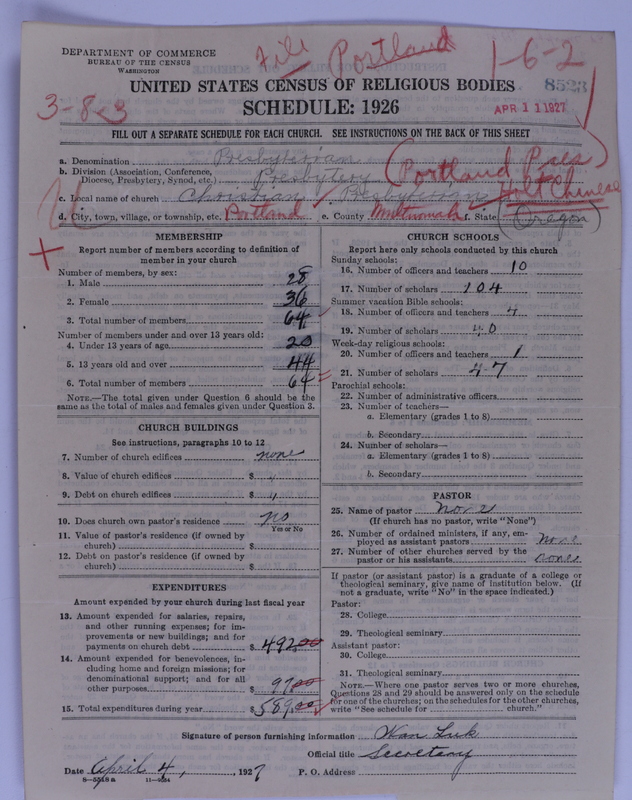 DEPARTMENT OF COMMERCE
BUREAU OF THE CENSUS
WASHINGTON
File Portland
1-6-2
8523
UNITED STATES CENSUS OF RELIGIOUS BODIES
3-8-3
SCHEDULE: 1926
APR 11 1927
FILL OUT A SEPARATE SCHEDULE FOR EACH CHURCH. SEE INSTRUCTIONS ON THE BACK OF THIS SHEET
a. Denomination Presbyterian
b. Division (Association, Conference, Diocese, Presbytery, Synod, etc.) Presbytery (Portland Pres)
c. Local name of church Christian Presbyterian Chinese
d. City, town, village, or township, etc. Portland e. County Multnomah f. State Oregon
MEMBERSHIP
Report number of members according to definition of
member in your church
Number of members, by sex:
1. Male 28
2. Female 36
3. Total number of members 64
Number of members under and over 13 years old:
4. Under 13 years of age 20
5. 13 years old and over 44
6. Total number of members 64
NOTE.—The total given under Question 6 should be
same as the total of males and females given under Question 3.
CHURCH BUILDINGS
See instructions, paragraphs 10 to 12
7. Number of church edifices none
8. Value of church edifices $ "
9. Debt on church edifices $ "
10. Does church own pastor's residence no
Yes or No
11. Value of pastor's residence (if owned by
church) $
12. Debt on pastor's residence (if owned by
church) $
EXPENDITURES
Amount expended by your church during last fiscal year
13. Amount expended for salaries, repairs,
and other running expenses; for im-
provements or new buildings; and for
payments on church debt $ 492.00
14. Amount expended for benevolences, in-
cluding home and foreign missions; for
denominational support; and for all
other purposes $ 97.00
15. Total expenditures during year $ 589.00
CHURCH SCHOOLS
Report here only schools conducted by this church
Sunday schools:
16. Number of officers and teachers 10
17. Number of scholars 104
Summer vacation Bible schools:
18. Number of officers and teachers 4
19. Number of scholars 40
Week-day religious schools:
20. Number of officers and teachers 1
21. Number of scholars 47
Parochial schools:
22. Number of administrative officers
23. Number of teachers—
a. Elementary (grades 1 to 8)
b. Secondary
24. Number of scholars—
a. Elementary (grades 1 to 8)
b. Secondary
PASTOR
25. Name of pastor None
(If church has no pastor, write "None")
26. Number of ordained ministers, if any, em-
ployed as assistant pastors None
27. Number of other churches served by the
pastor or his assistants none
If pastor (or assistant pastor) is a graduate of a college or
theological seminary, give name of institution below. (If
not a graduate, write "No" in the space indicated.)
Pastor:
28. College
29. Theological seminary
Assistant pastor:
30. College
31. Theological seminary
NOTE.—Where one pastor serves two or more churches,
Questions 28 and 29 should be answered only on the schedule
for one of the churches; on the schedules for the other churches,
write "See schedule for church."
Signature of person furnishing information Wan Luk
Official title Secretary
Date April 4, 1927 P. O. Address